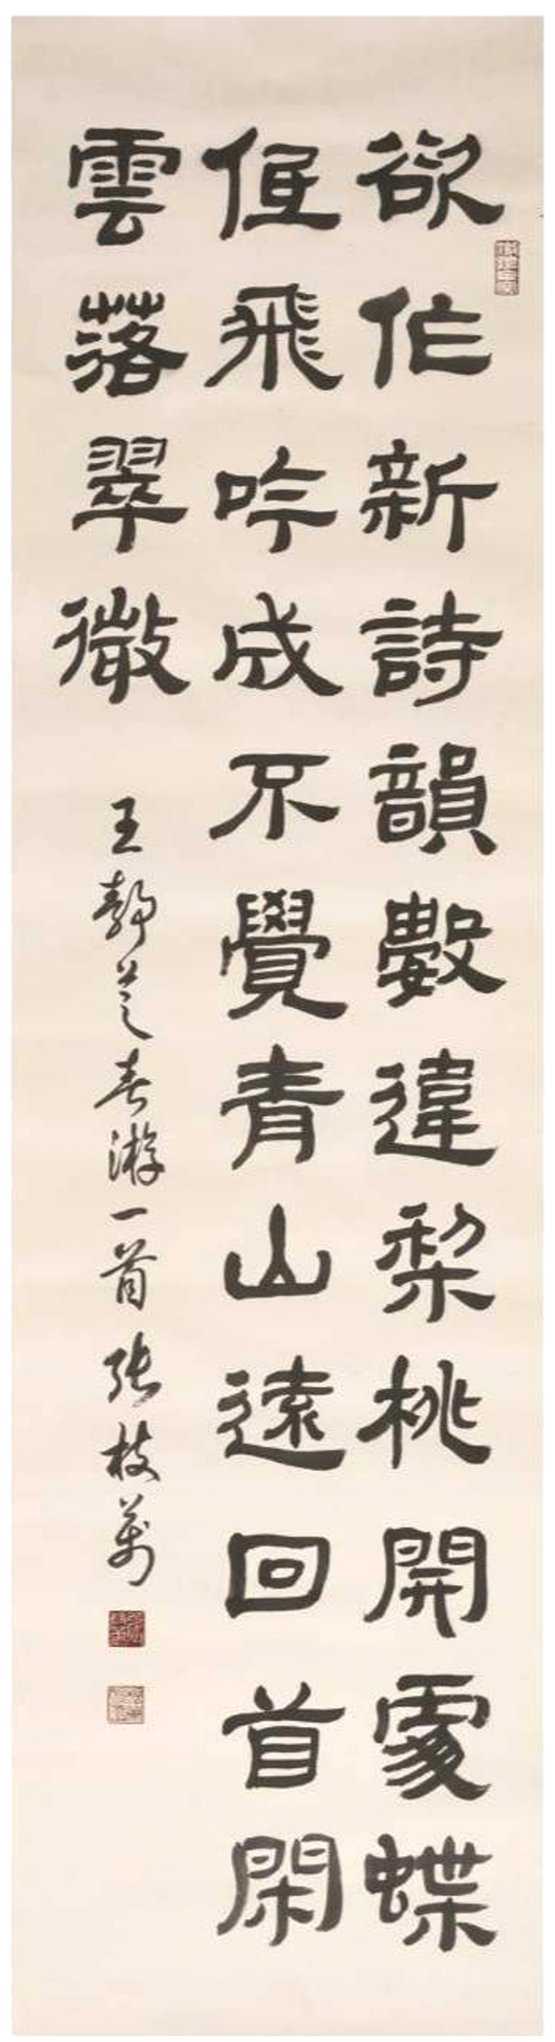 欲作新詩韻數違梨桃開處蝶
低飛吟成不覺青山遠回首閑
雲落翠微
王靜芝春游一首張枝萬